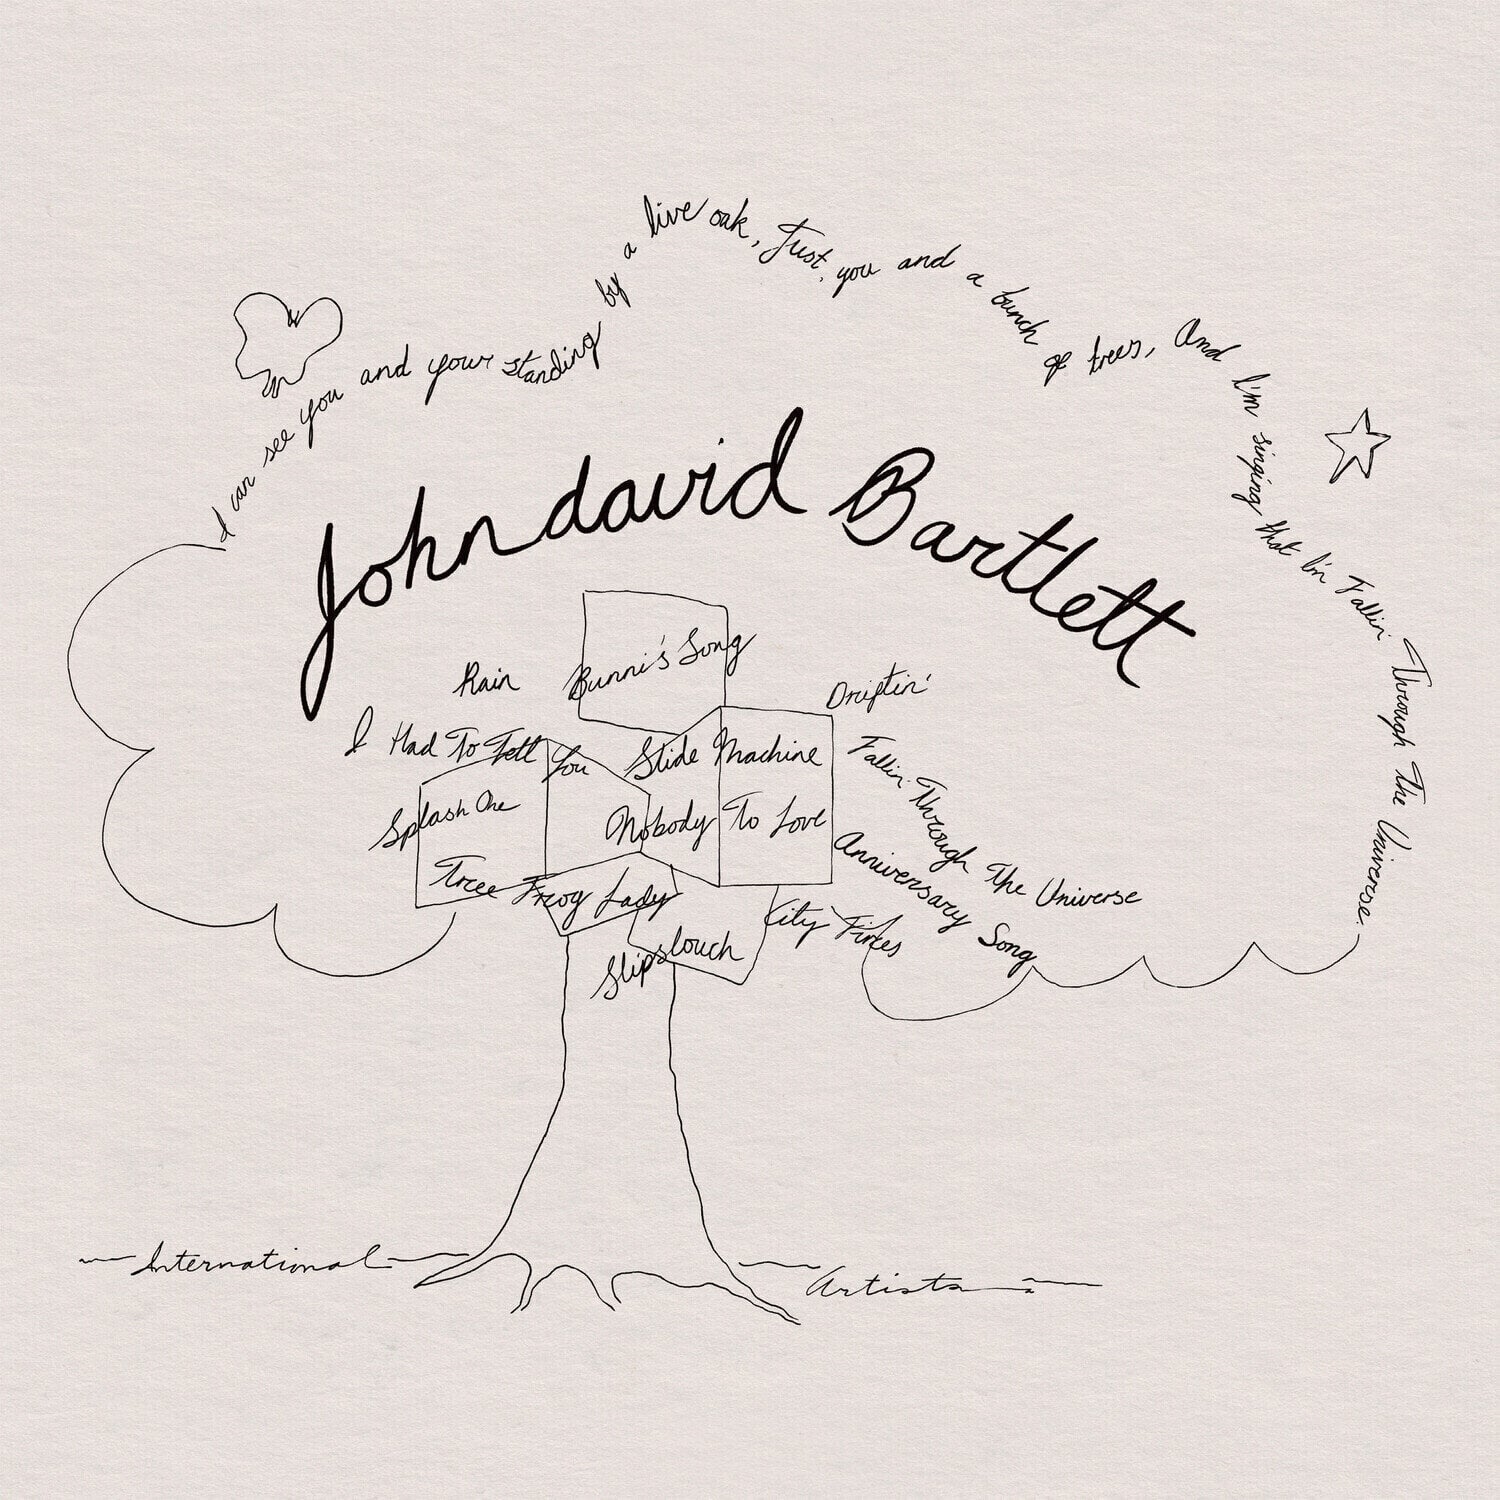 I can see you and your standing by a live oak, Just, you and a bunch of trees, And I'm singing that I'm Fallin' Through The Universe.
Johndavid Bartlett
Bunni's Song
Rain
Driftin'
I Had To Tell You
Slide Machine
Fallin' Through The Universe
Splash One
Nobody To Love
Anniversary Song
Tree Frog Lady
City Fires
Slipslouch
International Artists